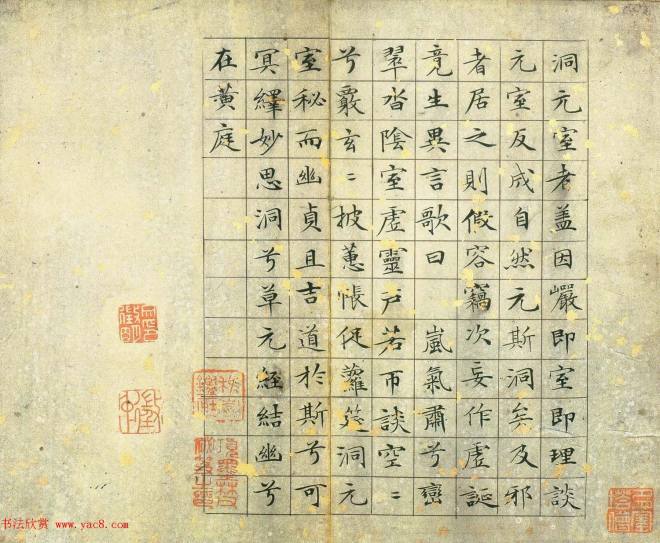 洞元室者盖因巖即室即理談
元室反成自然元斯洞矣及邪
者居之則假容竊次妄作虛誕
竟生異言歌曰 嵐氣肅兮巒
翠沓陰室虛靈户若帀談空〻
兮覈玄〻披蕙帳促蘿筵洞元
室秘而幽貞且吉道於斯兮可
冥繹妙思洞兮草元經結幽兮
在黄庭
书法欣赏 www.yac8.com